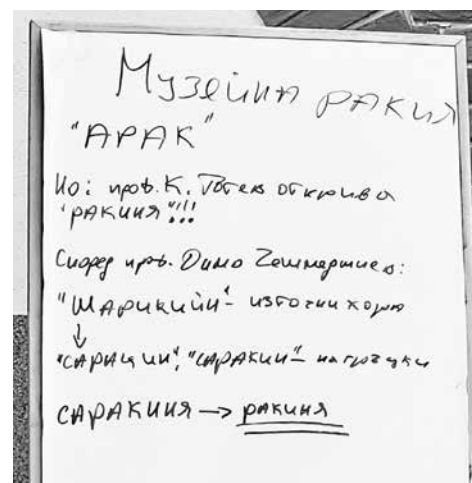 Музейна ракия
"АРАК"
Но: проф. К. Тотев открива
"ракиня"!!!
Според проф. Димо Чешмеджиев:
"Шарикийн" – източни хора
↓
"сарацин", "саракин" – на гръцки
саракиня → ракиня